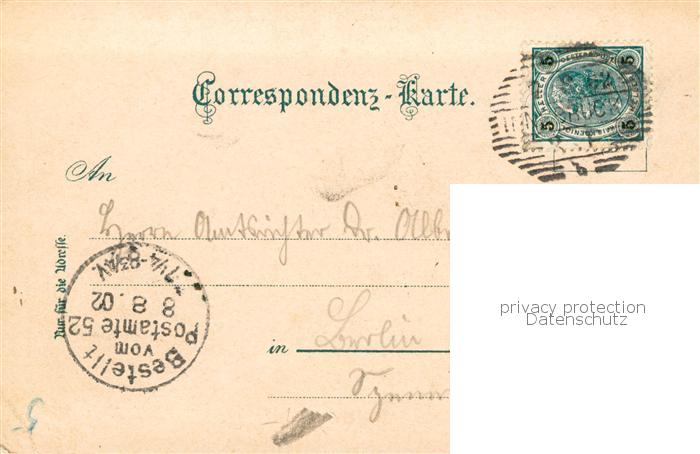 Correspondenz-Karte.
5 5
5 5
INNSBRUCK
An
Herrn Amtsrichter Dr. Albe
Nur für die Adresse.
in Berlin
Bestellt
vom
Postamte 52
8 8. 02
7¼-8¾V.
privacy protection
Datenschutz